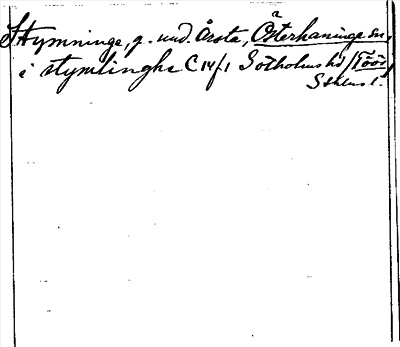 Stymninge, g. und. Årsta, Österhaninge sn,
i stymlinghe C 14/1 Sotholms hd
Sthlms l.